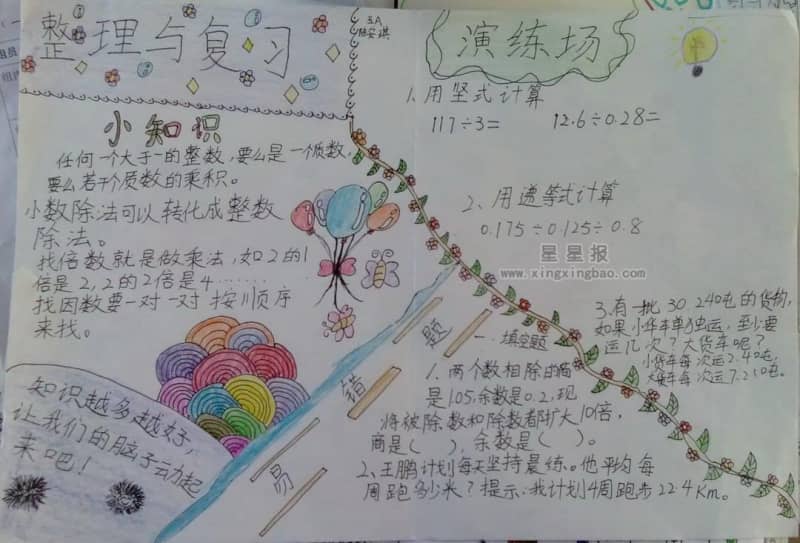 整理与复习
五A
小知识
任何一个大于一的整数，要么是一个质数，
要么若干个质数的乘积。
小数除法可以转化成整数
除法。
找倍数就是做乘法，如2的1
倍是2，2的2倍是4……
找因数要一对一对按顺序
来找。
知识越多越好，
让我们的脑子动起
来吧！
演练场
1、用竖式计算
117÷3= 12.6÷0.28=
2、用递等式计算
0.175÷0.125÷0.8
星星报
www.xingxingbao.com
3.有一批30 240吨的货物，
如果小货车单独运，至少要
运几次？大货车呢？
小货车每次运2.40吨，
大货车每次运7.210吨。
易错题
一、填空题
1、两个数相除的商
是105，余数是0.2，现
将被除数和除数都扩大10倍，
商是（ ），余数是（ ）。
2、王鹏计划每天坚持晨练。他平均每
周跑多少米？提示：我计划4周跑步22.4Km。